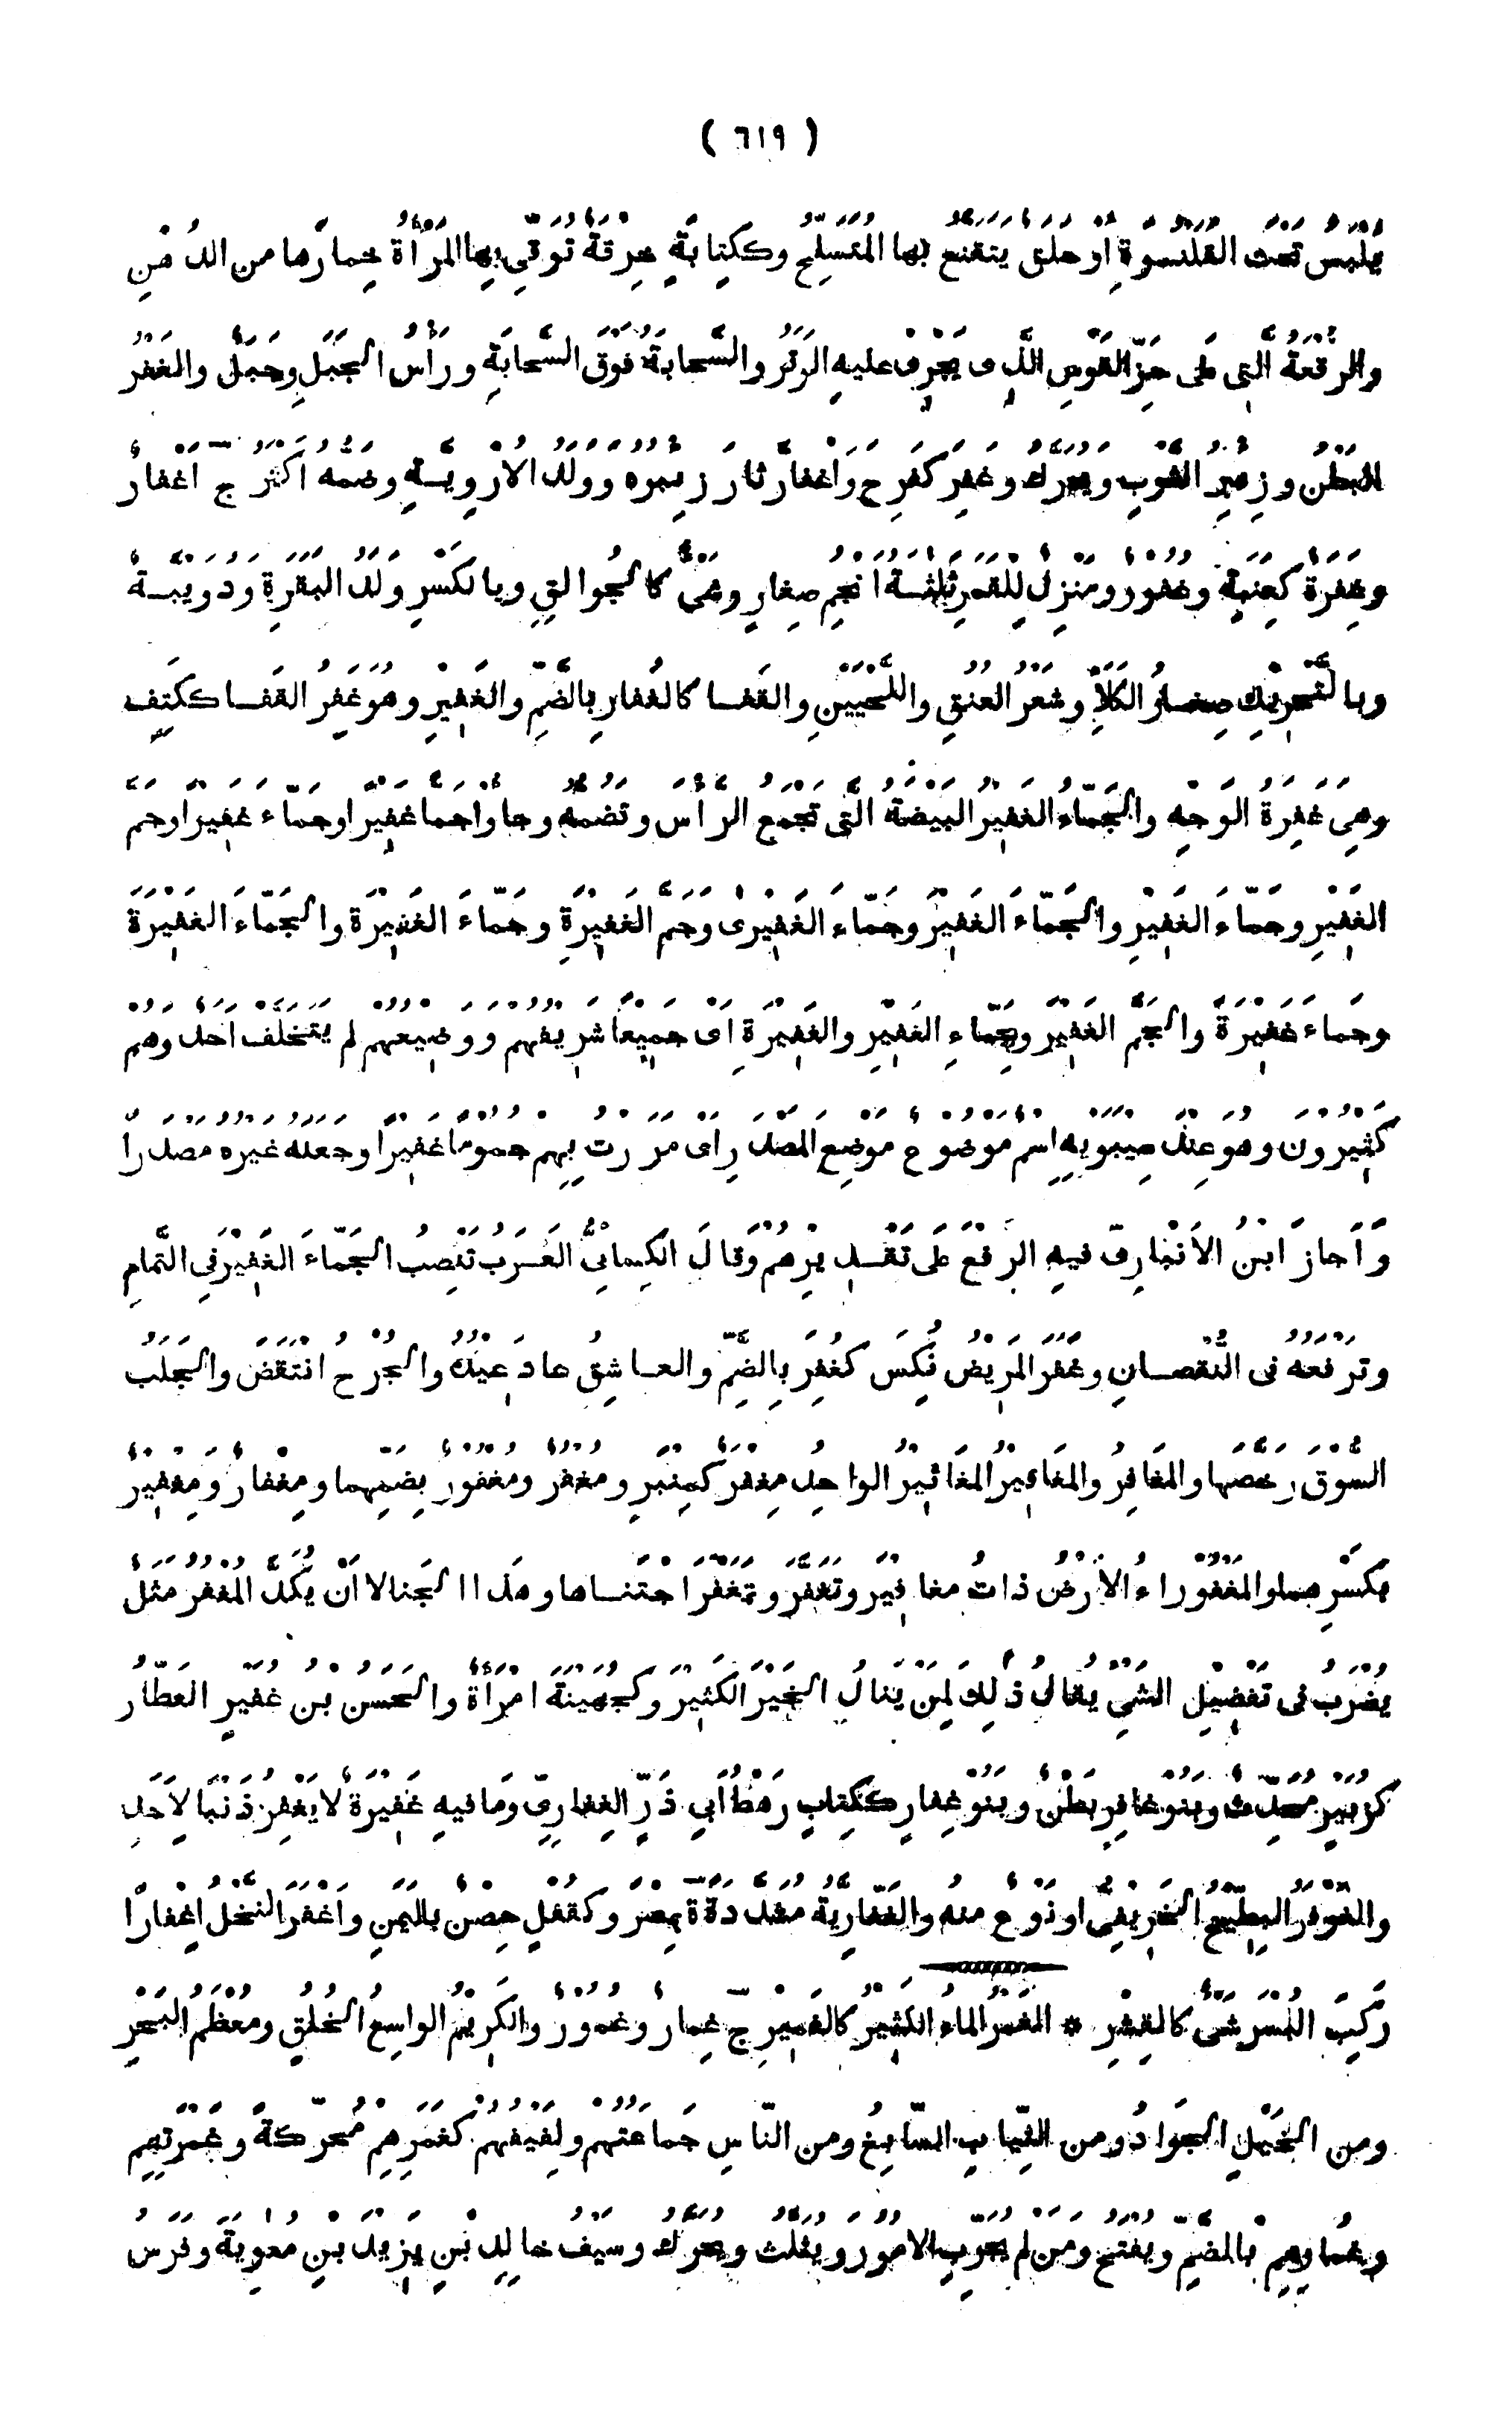 ( ٦١٩ )
يلبس تحت القلنسوة او حلق يتقنع بها المتسلح وككتابة خرقة توقى بها المرأة خمارها من الدهن
والرقعة التى على حز القوس الذى يجرى عليه الوتر والسحابة فوق السحابة ورأس الجبل وجبل والغفر
البطن وزئبر الثوب ويحرك وغفر كفرح واغفار ثار زئبره وولد الاروية وضمه اكثر ج اغفار
وغفرة كعنبة وغفور ومنزل للقمر ثلثة انجم صغار وهى كالجوالق وبالكسر ولد البقرة ودويبة
وبالتحريك صغار الكلأ وشعر العنق واللحيين والقفا كالغفار بالضم والغفير وهو غفر القفا ككتف
وهى غفرة الوجه والجماء الغفير البيضة التى تجمع الرأس وتضمه وجاوا جما غفيرا وجماء غفيرا وجم
الغفير وجماء الغفير والجماء الغفير وجماء الغفيرى وجم الغفيرة وجماء الغفيرة والجماء الغفيرة
وجماء غفيرة والجم الغفير وبجماء الغفير والغفيرة اى جميعا شريفهم ووضيعهم لم يتخلف احد وهم
كثيرون وهو عند سيبويه اسم موضوع موضع المصدر اى مررت بهم جموما غفيرا وجعله غيره مصدرا
وأجاز ابن الانبارى فيه الرفع على تقدير هم وقال الكسائى العرب تنصب الجماء الغفير فى التمام
وترفعه فى النقصان وغفر المريض نكس كغفر بالضم والعاشق عاد عيده والجرح انتقض والجلب
السوق رخصها والمغافر والمغافير المغاثير الواحد مغفر كمنبر ومغفر ومغفور بضمهما ومغفار ومغفير
بكسرهما والمغفوراء الارض ذات مغافير وتغفر وتمغفر اجتناها وهذا الجنا لا ان يكد المغفر مثل
يضرب فى تفضيل الشئ يقال ذلك لمن ينال الخير الكثير وكجهينة امرأة والحسن بن غفير العطار
كزبير محدث وبنو غافر بطن وبنو غفار ككتاب رهط ابي ذر الغفارى وما فيه غفيرة لا يغفر ذنبا لاحد
والغوفر البطيخ الخريفى او نوع منه والغفارية مشددة بمصر وكقفل حصن باليمن واغفر النخل اغفارا
ركب البسر شئ كالقشر * الغمر الماء الكثير كالغمير ج غمار وغمور والكريم الواسع الخلق ومعظم البحر
ومن الخيل الجواد ومن الثياب السابغ ومن الناس جماعتهم ولفيفهم كغمرهم محركة وغمرتهم
وغمارهم بالضم ويفتح ومن لم يجرب الامور ويثلث ويحرك وسيف خالد بن يزيد بن معوية وفرس